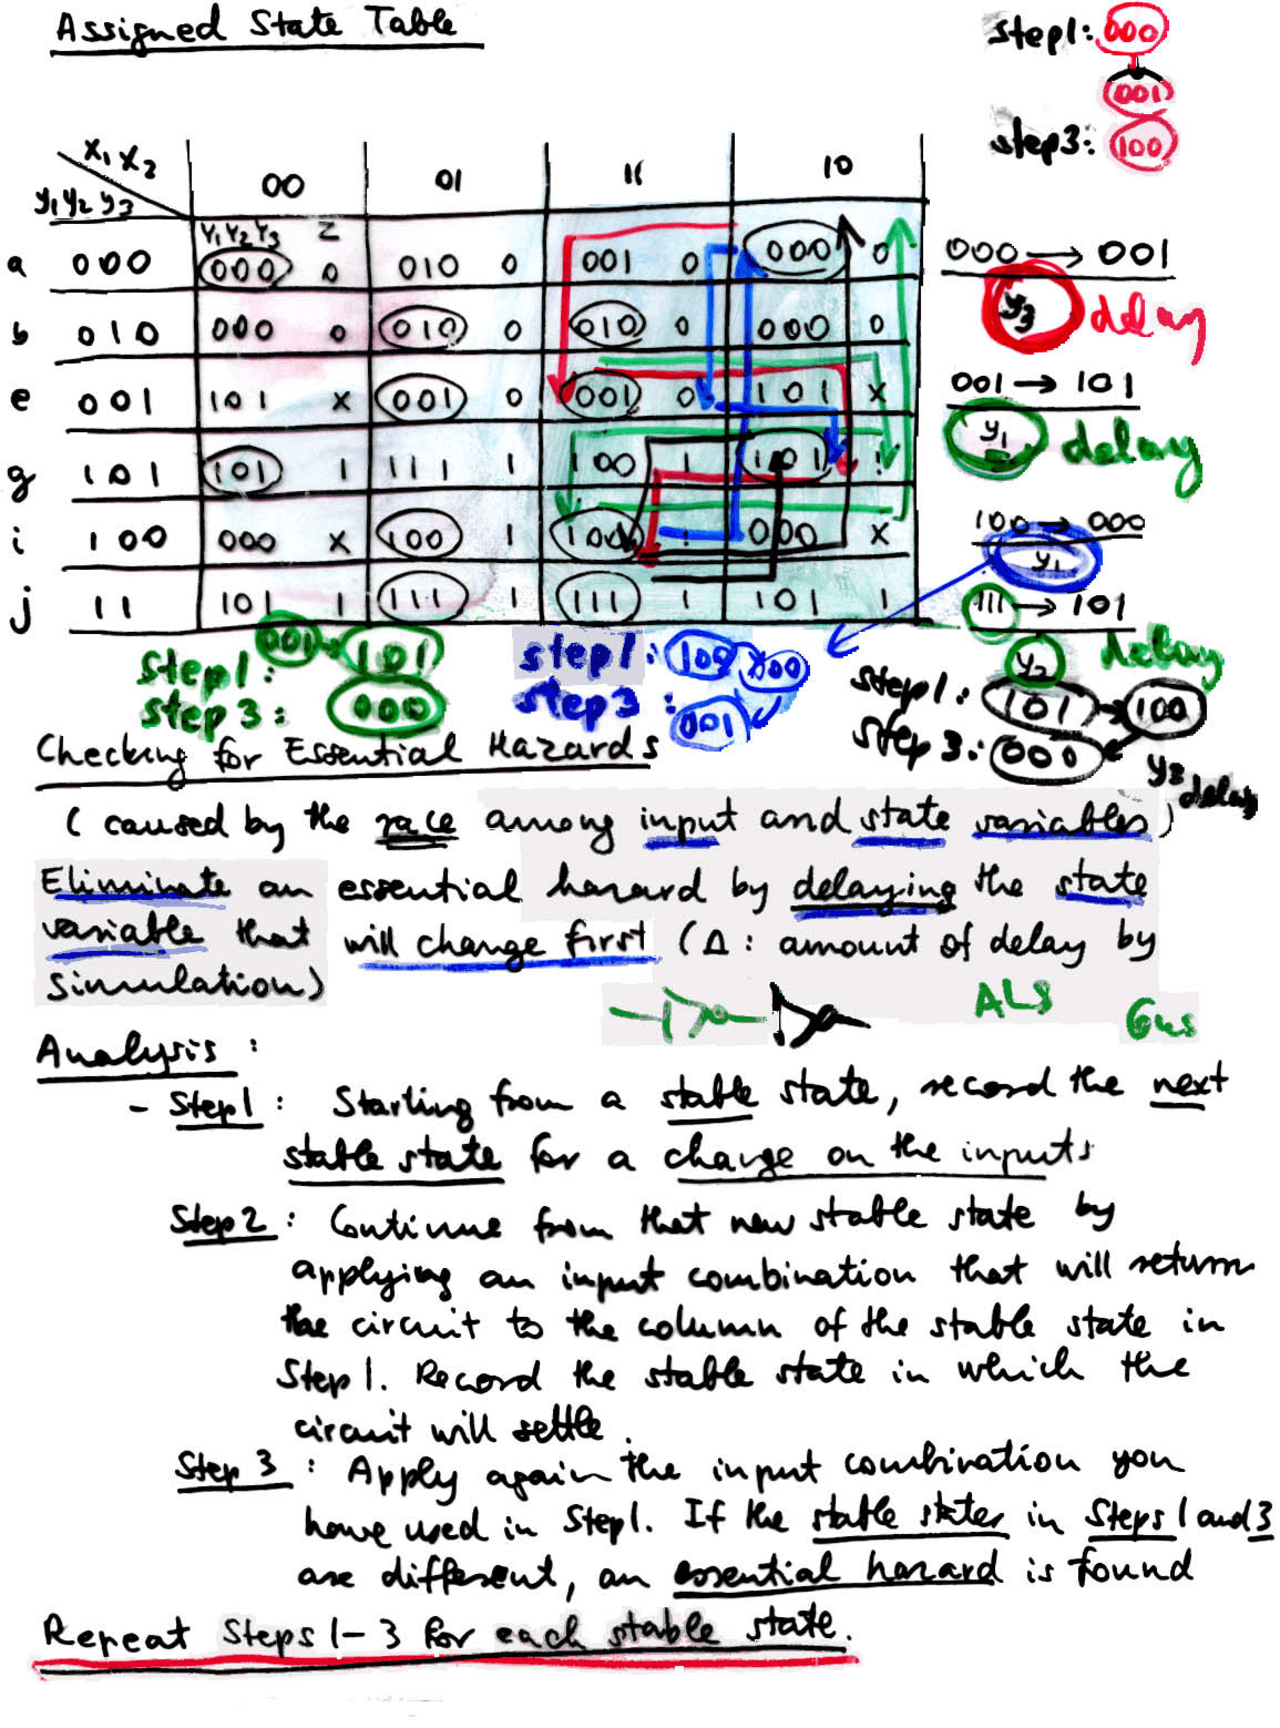 Assigned State Table
step1: 000
001
step3: 100
x₁ x₂
y₁ y₂ y₃
00 01 11 10
Y₁ Y₂ Y₃ Z
a 000 000 0 010 0 001 0 000 0
b 010 000 0 010 0 010 0 000 0
e 001 101 x 001 0 001 0 101 x
g 101 101 1 111 1 100 1 101 1
i 100 000 x 100 1 100 1 000 x
j 11 101 1 111 1 111 1 101 1
000 → 001
y₃ delay
001 → 101
y₁ delay
100 → 000
y₁
111 → 101
y₂ delay
step1: 001 → 101
step 3: 000
step1: 100 → 000
step 3: 001
step1: 101 → 100
step 3: 000
y₃ delay
Checking for Essential Hazards
( caused by the race among input and state variables)
Eliminate an essential hazard by delaying the state
variable that will change first (Δ: amount of delay by
simulation)
ALS 6ns
Analysis:
- Step1: Starting from a stable state, record the next
stable state for a change on the inputs
Step2: Continue from that new stable state by
applying an input combination that will return
the circuit to the column of the stable state in
Step 1. Record the stable state in which the
circuit will settle.
Step 3: Apply again the input combination you
have used in Step1. If the stable states in Steps 1 and 3
are different, an essential hazard is found
Repeat Steps 1-3 for each stable state.